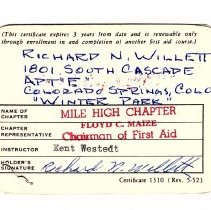 (This certificate expires 3 years from date and is renewable only
through enrollment in and completion of another first aid course.)
RICHARD N. WILLETT
1801 SOUTH CASCADE
APT "E"
COLORADO SPRINGS, COLO
"WINTER PARK"
NAME OF CHAPTER MILE HIGH CHAPTER
CHAPTER REPRESENTATIVE FLOYD C. MAIZE
Chairman of First Aid
INSTRUCTOR Kent Westedt
HOLDER'S SIGNATURE Richard N. Willett
Certificate 1310 (Rev. 5-52)